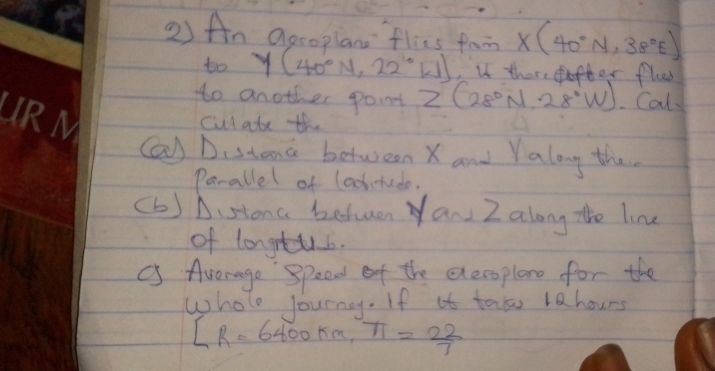 UR M
2) An aeroplane flies from X(40°N, 38°E)
to Y(40°N, 22°W), it thereafter flies
to another point Z(28°N, 28°W). Cal-
culate the
(a) Distance between X and Y along their
Parallel of latitude.
(b) Distance between Y and Z along the line
of
c) Average Speed of the aeroplane for the
whole journey. If it takes 12 hours
[R = 6400 Km, π = 22/7